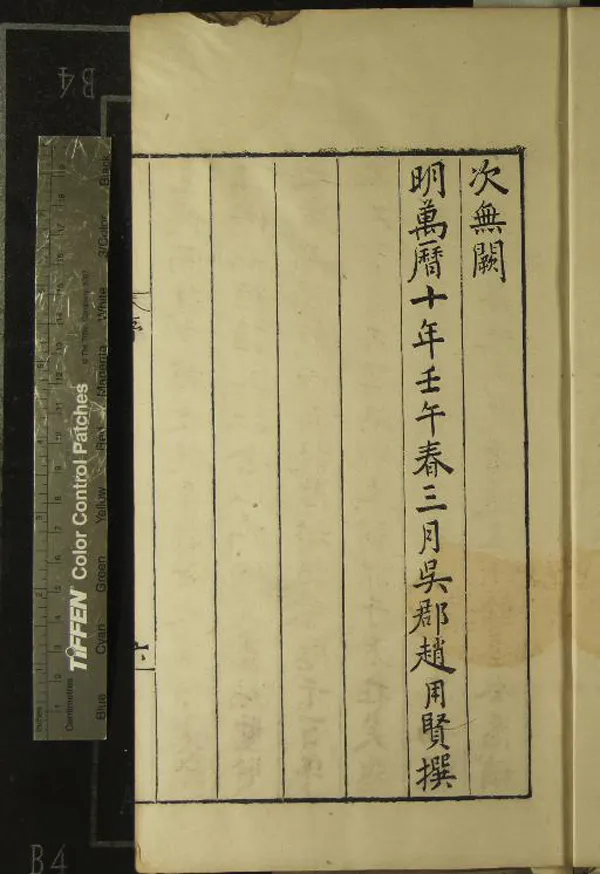 次無闕
明萬曆十年壬午春三月吳郡趙用賢撰
六
B4
B4
TIFFEN® Color Control Patches
© The Tiffen Company, 2007
Inches
Centimetres
Blue
Cyan
Green
Yellow
Red
Magenta
White
3/Color
Black